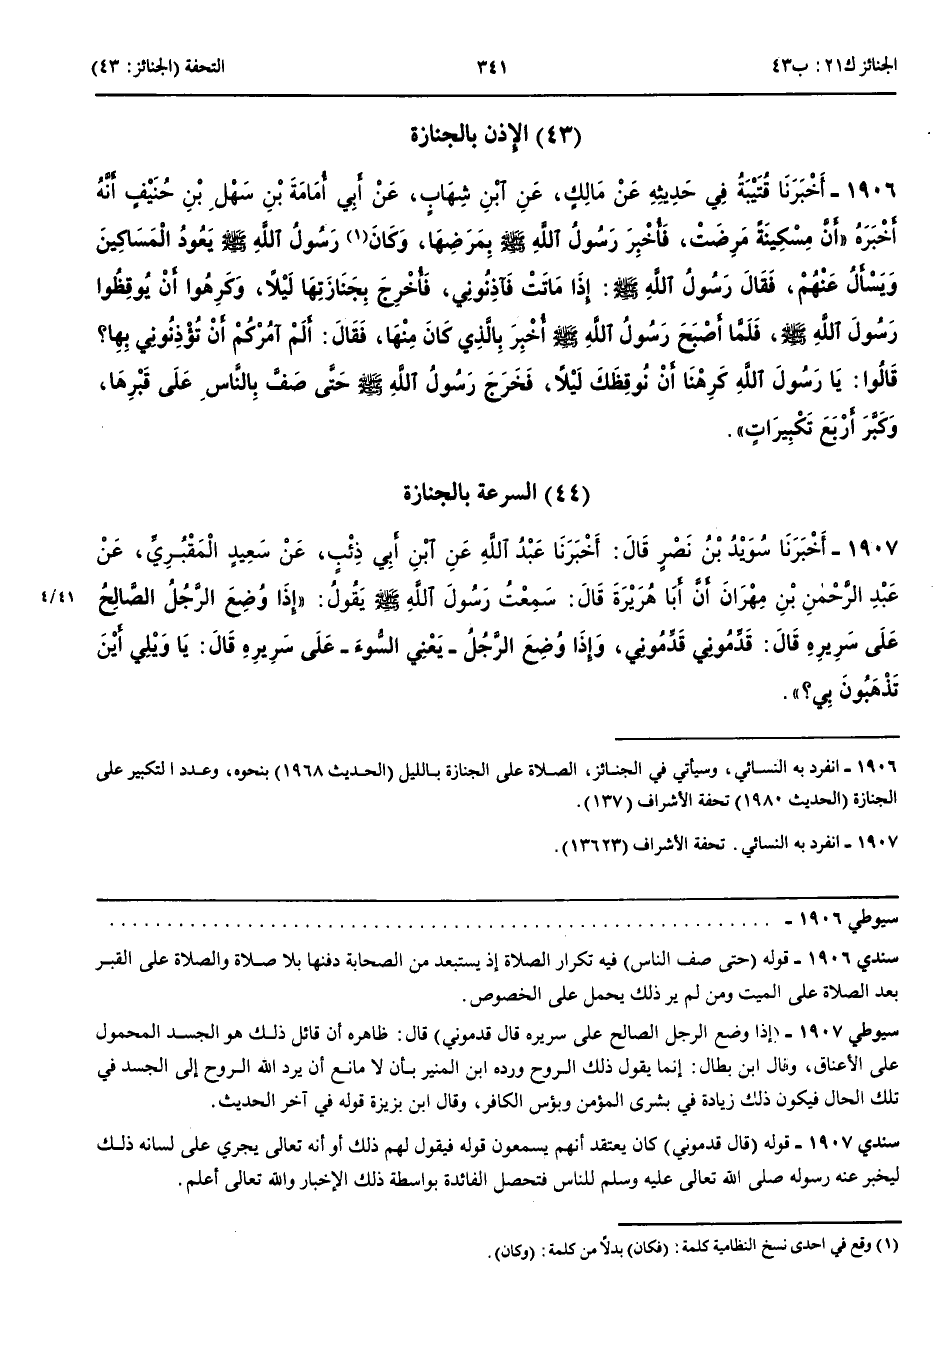 الجنائز ك٢١: ب٤٣
٣٤١
التحفة (الجنائز: ٤٣)
(٤٣) الإذن بالجنازة
١٩٠٦ - أَخْبَرَنَا قُتَيْبَةُ فِي حَدِيثِهِ عَنْ مَالِكٍ، عَنِ ٱبْنِ شِهَابٍ، عَنْ أَبِي أُمَامَةَ بْنِ سَهْلِ بْنِ حُنَيْفٍ أَنَّهُ
أَخْبَرَهُ «أَنَّ مِسْكِينَةً مَرِضَتْ، فَأُخْبِرَ رَسُولُ ٱللَّهِ ﷺ بِمَرَضِهَا، وَكَانَ(١) رَسُولُ ٱللَّهِ ﷺ يَعُودُ الْمَسَاكِينَ
وَيَسْأَلُ عَنْهُمْ، فَقَالَ رَسُولُ ٱللَّهِ ﷺ: إِذَا مَاتَتْ فَآذِنُونِي، فَأُخْرِجَ بِجَنَازَتِهَا لَيْلًا، وَكَرِهُوا أَنْ يُوقِظُوا
رَسُولَ ٱللَّهِ ﷺ، فَلَمَّا أَصْبَحَ رَسُولُ ٱللَّهِ ﷺ أُخْبِرَ بِالَّذِي كَانَ مِنْهَا، فَقَالَ: أَلَمْ آمُرْكُمْ أَنْ تُؤْذِنُونِي بِهَا؟
قَالُوا: يَا رَسُولَ ٱللَّهِ كَرِهْنَا أَنْ نُوقِظَكَ لَيْلًا، فَخَرَجَ رَسُولُ ٱللَّهِ ﷺ حَتَّى صَفَّ بِالنَّاسِ عَلَى قَبْرِهَا،
وَكَبَّرَ أَرْبَعَ تَكْبِيرَاتٍ».
(٤٤) السرعة بالجنازة
١٩٠٧ - أَخْبَرَنَا سُوَيْدُ بْنُ نَصْرٍ قَالَ: أَخْبَرَنَا عَبْدُ ٱللَّهِ عَنِ ٱبْنِ أَبِي ذِئْبٍ، عَنْ سَعِيدٍ الْمَقْبُرِيِّ، عَنْ
عَبْدِ الرَّحْمٰنِ بْنِ مِهْرَانَ أَنَّ أَبَا هُرَيْرَةَ قَالَ: سَمِعْتُ رَسُولَ ٱللَّهِ ﷺ يَقُولُ: «إِذَا وُضِعَ الرَّجُلُ الصَّالِحُ
٤/٤١
عَلَى سَرِيرِهِ قَالَ: قَدِّمُونِي قَدِّمُونِي، وَإِذَا وُضِعَ الرَّجُلُ - يَعْنِي السُّوءَ - عَلَى سَرِيرِهِ قَالَ: يَا وَيْلِي أَيْنَ
تَذْهَبُونَ بِي؟».
١٩٠٦ - انفرد به النسائي، وسيأتي في الجنائز، الصلاة على الجنازة بالليل (الحديث ١٩٦٨) بنحوه، وعدد التكبير على
الجنازة (الحديث ١٩٨٠) تحفة الأشراف (١٣٧).
١٩٠٧ - انفرد به النسائي. تحفة الأشراف (١٣٦٢٣).
سيوطي ١٩٠٦ - . . . . . . . . . . . . . . . . . . . . . . . . . . . . . . . . . . . . . . . . . . . . . . . . . . . . . . . . . .
سندي ١٩٠٦ - قوله (حتى صف الناس) فيه تكرار الصلاة إذ يستبعد من الصحابة دفنها بلا صلاة والصلاة على القبر
بعد الصلاة على الميت ومن لم ير ذلك يحمل على الخصوص.
سيوطي ١٩٠٧ - (إذا وضع الرجل الصالح على سريره قال قدموني) قال: ظاهره أن قائل ذلك هو الجسد المحمول
على الأعناق، وقال ابن بطال: إنما يقول ذلك الروح ورده ابن المنير بأن لا مانع أن يرد الله الروح إلى الجسد في
تلك الحال فيكون ذلك زيادة في بشرى المؤمن وبؤس الكافر، وقال ابن بزيزة قوله في آخر الحديث.
سندي ١٩٠٧ - قوله (قال قدموني) كان يعتقد أنهم يسمعون قوله فيقول لهم ذلك أو أنه تعالى يجري على لسانه ذلك
ليخبر عنه رسوله صلى الله تعالى عليه وسلم للناس فتحصل الفائدة بواسطة ذلك الإخبار والله تعالى أعلم.
(١) وقع في احدى نسخ النظامية كلمة: (فكان) بدلاً من كلمة: (وكان).